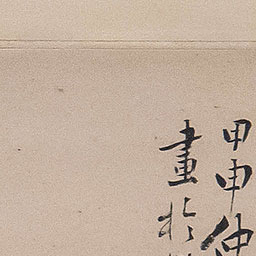 甲申仲
畫於